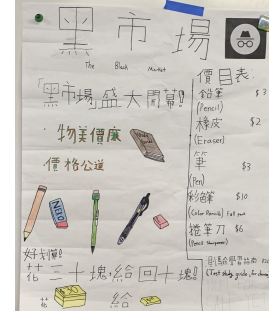 黑市場
The Black Market
「黑市場」盛大開幕!!
物美價廉
價格公道
NITRO
好划價!!
花三十塊給回十塊!!
花 給
價目表:
鉛筆 $3
(Pencil)
橡皮 $2
(Eraser)
筆 $3
(Pen)
彩鉛筆 $10
(Color Pencils) Full pack
捲筆刀 $6
(Pencil Sharpener)